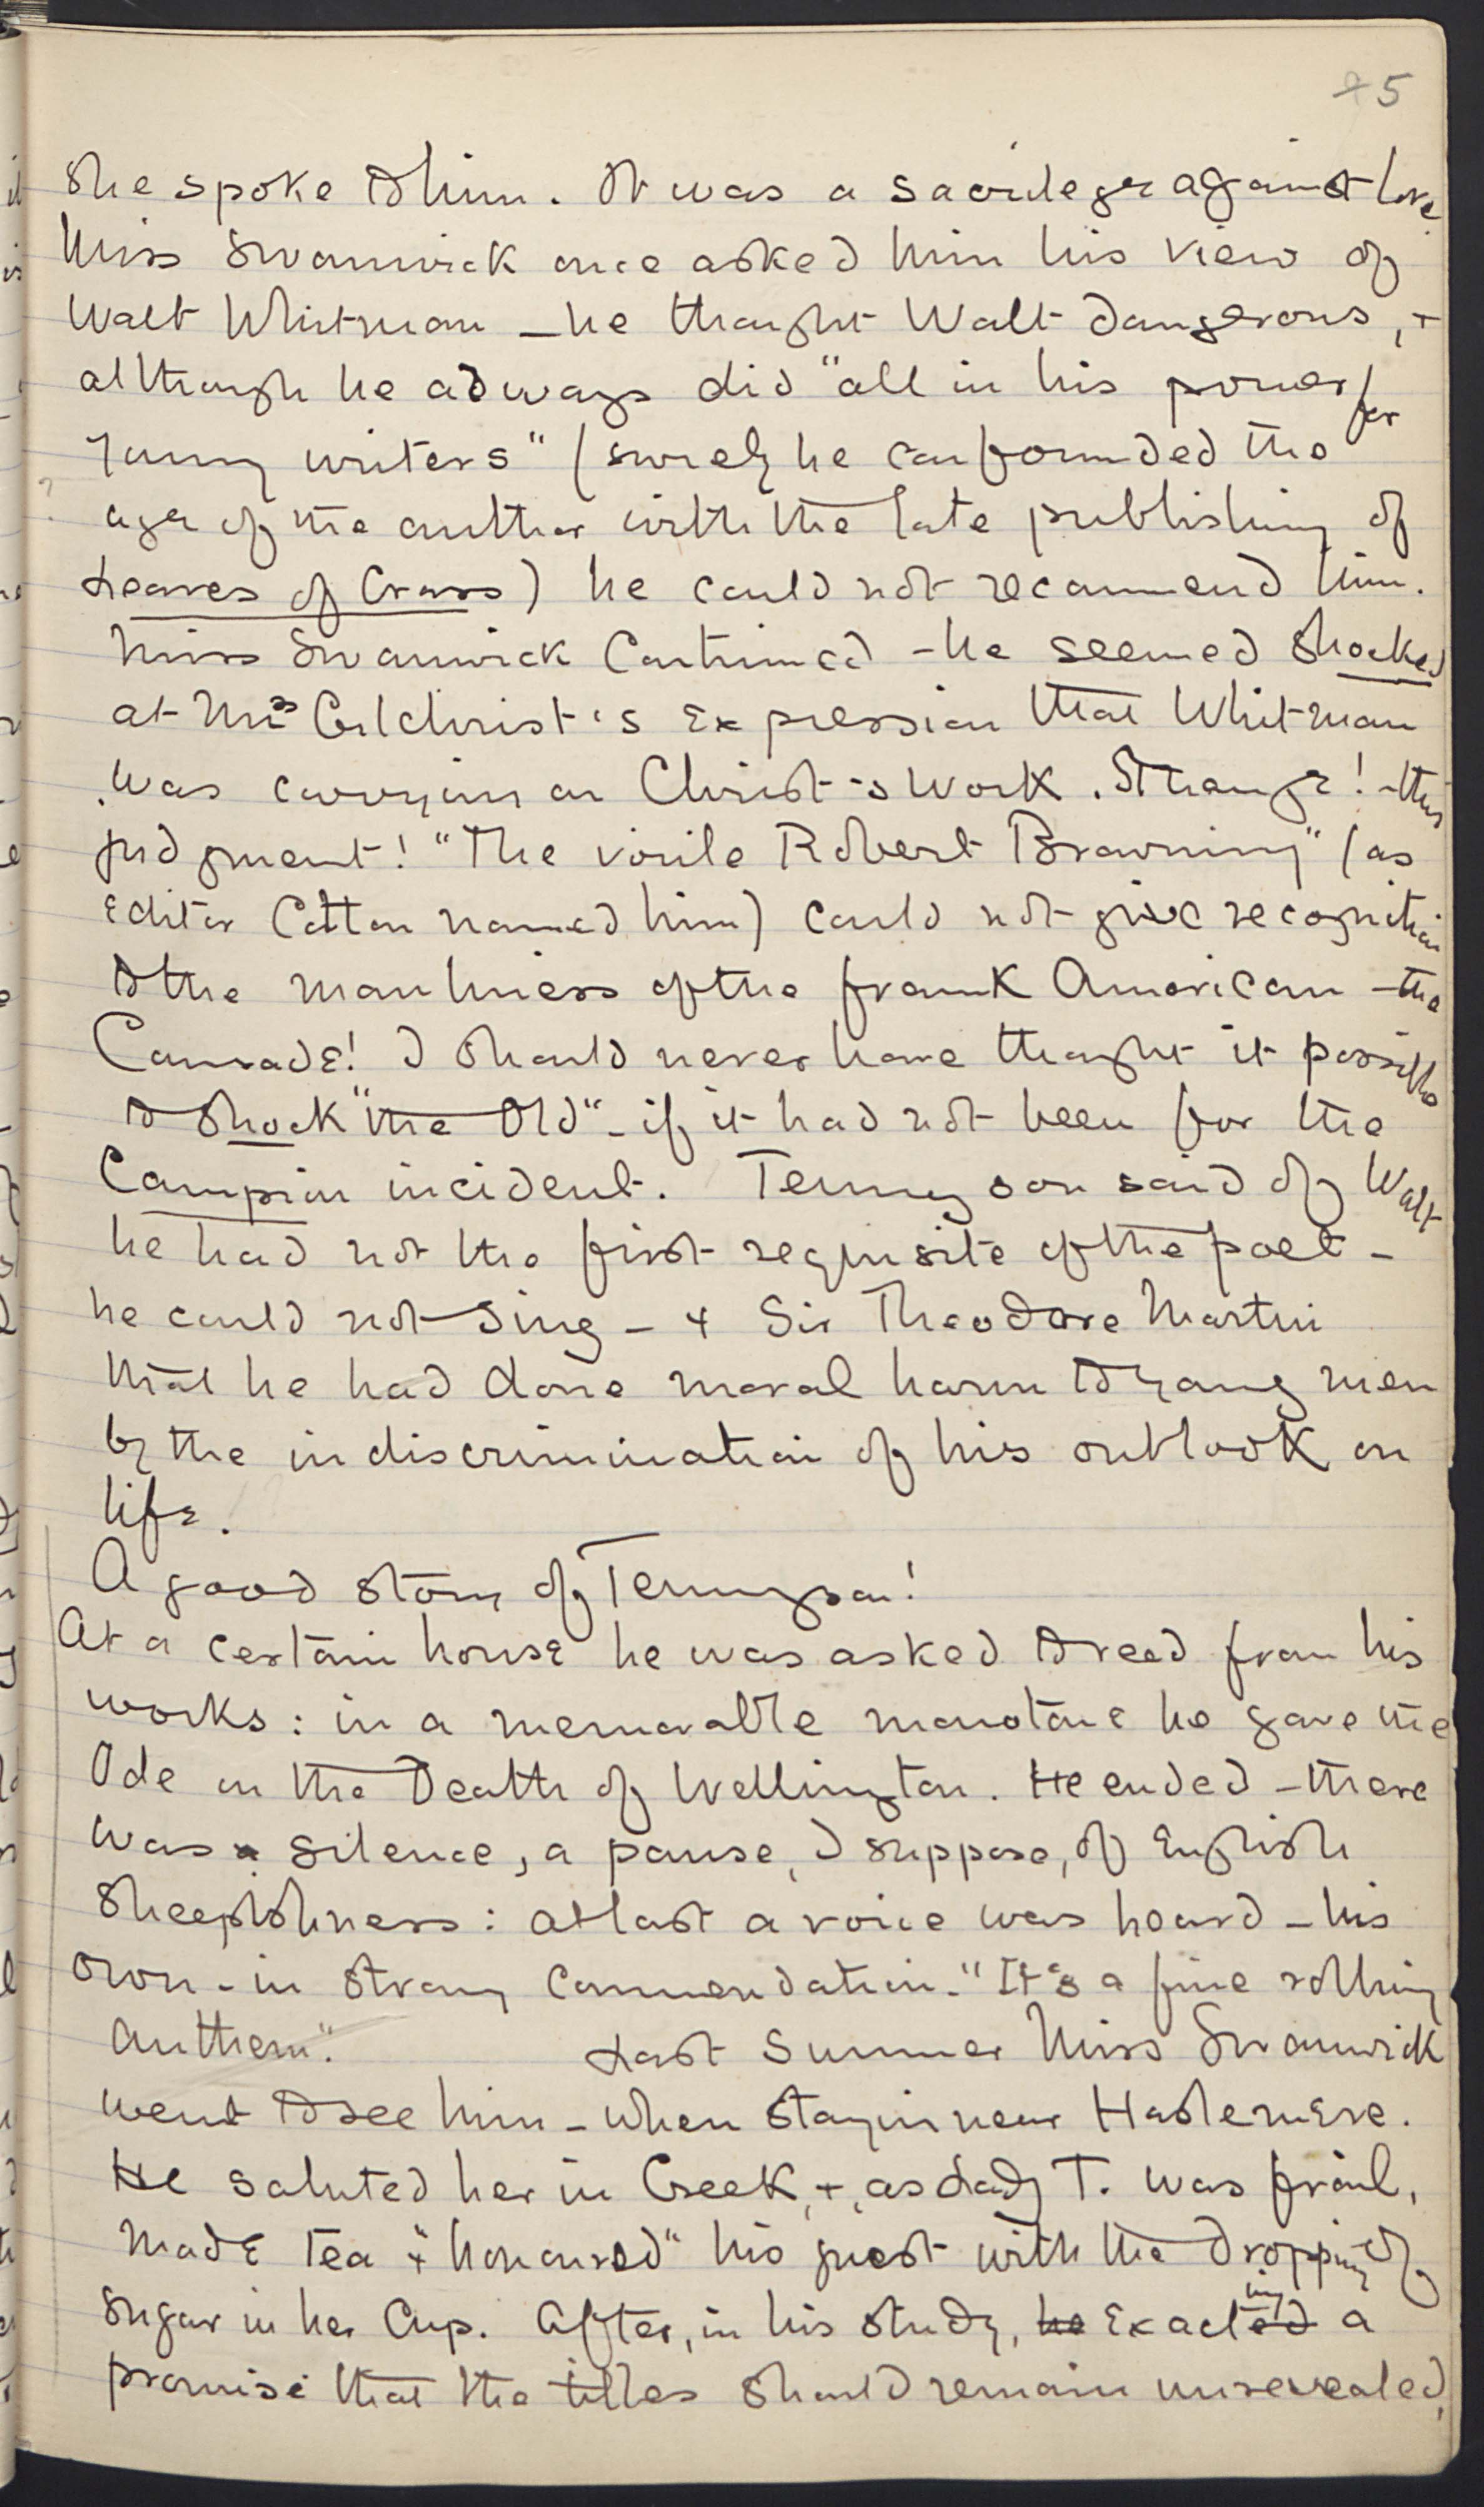 25
She spoke to him. It was a sacrilege against love
Miss Swanwick once asked him his view of
Walt Whitman – he thought Walt dangerous, +
although he adways did "all in his power for
young writers" (surely he confounded the
age of the author with the late publishing of
Leaves of Grass) he could not recommend him.
Miss Swanwick continued – he seemed shocked
at Mrs Gilchrist's expression that Whitman
was carrying on Christ's work. Strange! – this
judgment! "The virile Robert Browning" (as
Editor Cotton named him) could not give recognition
to the manliness of the frank American – the
Camrade! I should never have thought it possible
to shock "the Old" – if it had not been for the
Campion incident. Tennyson said of Walt
he had not the first requisite of the poet –
he could not sing – + Sir Theodore Martin
that he had done moral harm to young men
by the indiscrimination of his outlook on
life.
A good story of Tennyson!
At a certain house he was asked to read from his
works: in a memorable monotone he gave the
Ode on the Death of Wellington. He ended – there
was a silence, a pause, I suppose, of English
Sheepishness: at last a voice was heard – his
own – in strong commendation – "It's a fine rolling
anthem."
Last Summer Miss Swanwick
went to see him – when staying near Haslemere.
He saluted her in Greek, +, as Lady T. was frail,
made tea + "honoured" his guest with the dropping of
sugar in her Cup. After, in his study, he exacted ing a
promise that the titles should remain unrevealed,